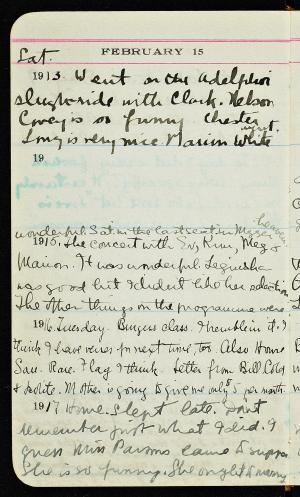 FEBRUARY 15
Sat.
1913. Went on the Adelphoi
sleighride with Clark. Nelson
Covey is so funny Chester
Long is very nice Marion White
19
wonderful. Sat in the last seat in
1915. The concert with Ev, Kim, Meg &
Marion. It was wonderful
was good but I didn't like her selection
The other things on the programme were
1916. Tuesday. Burgess class. I
think I have verses for next time, too. Also Home
Letter from Bill Coles
& polite. Mother is going to give me only $5 per month
1917 Home. Slept late. Don't
remember just what I did. I
guess Miss Parsons came to supper
She is so funny. She ought to marry